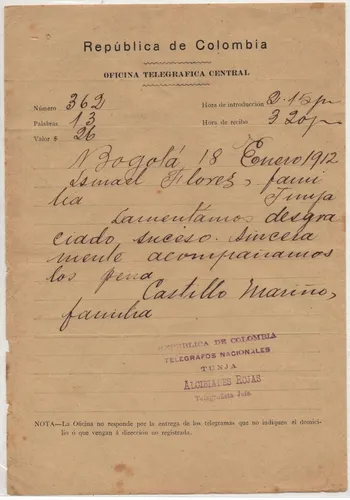 República de Colombia
OFICINA TELEGRAFICA CENTRAL
Número 362 Hora de introducción 2-15 p
Palabras 13 Hora de recibo 3 20 p
Valor $ 26
Bogotá 18 Enero 1912
Ismael Florez, fami
lia Tunja
Lamentamos desgra
ciado suceso. Sincera
mente acompañamos
los pena
Castillo Mariño,
familia
REPUBLICA DE COLOMBIA
TELEGRAFOS NACIONALES
TUNJA
ALCIBIADES ROJAS
Telegrafista Jefe
NOTA—La Oficina no responde por la entrega de los telegramas que no indiquen el domici-
lio o que vengan á dirección no registrada.